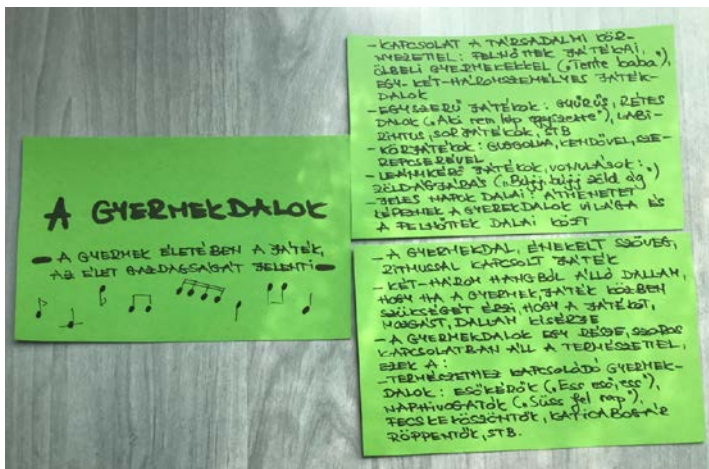 A GYERMEKDALOK
- A GYERMEK ÉLETÉBEN A JÁTÉK,
AZ ÉLET GAZDAGSÁGÁT JELENTI -
- KAPCSOLAT A TÁRSADALMI KÖR-
NYEZETTEL: FELNŐTTEK JÁTÉKAI,
ÖLBELI GYERMEKEKKEL („Tente baba"),
EGY-KÉT-HÁROMSZEMÉLYES JÁTÉK-
DALOK
- EGYSZERŰ JÁTÉKOK: GYŰRŰS, RÉTES
DALOK („Aki nem lép egyszerre"), LABI-
RINTUS, SORJÁTÉKOK, STB
- KÖRJÁTÉKOK: GUGGOLVA, KENDŐVEL, SZE-
REPCSERÉVEL
- LEÁNYKÉRŐ JÁTÉKOK, VONULÁSOK:
ZÖLDÁGJÁRÁS („Bújj, bújj zöld ág")
- JELES NAPOK DALAI ÁTMENETET
KÉPEZNEK A GYEREKDALOK VILÁGA ÉS
A FELNŐTTEK DALAI KÖZT
- A GYERMEKDAL, ÉNEKELT SZÖVEG,
RITMUSSAL KAPCSOLT JÁTÉK
- KÉT-HÁROM HANGBÓL ÁLLÓ DALLAM,
HOGY HA A GYERMEK, JÁTÉK KÖZBEN
SZÜKSÉGÉT ÉRZI, HOGY A JÁTÉKOT,
MOZGÁST, DALLAM KÍSÉRJE
- A GYERMEKDALOK EGY RÉSZE, SZOROS
KAPCSOLATBAN ÁLL A TERMÉSZETTEL,
EZEK A:
- TERMÉSZETHEZ KAPCSOLÓDÓ GYERMEK-
DALOK: ESŐKÉRŐK („Ess eső, ess"),
NAPHÍVOGATÓK („Süss fel nap"),
FECSKEKÖSZÖNTŐK, KATICABOGÁR
RÖPPENTŐK, STB.